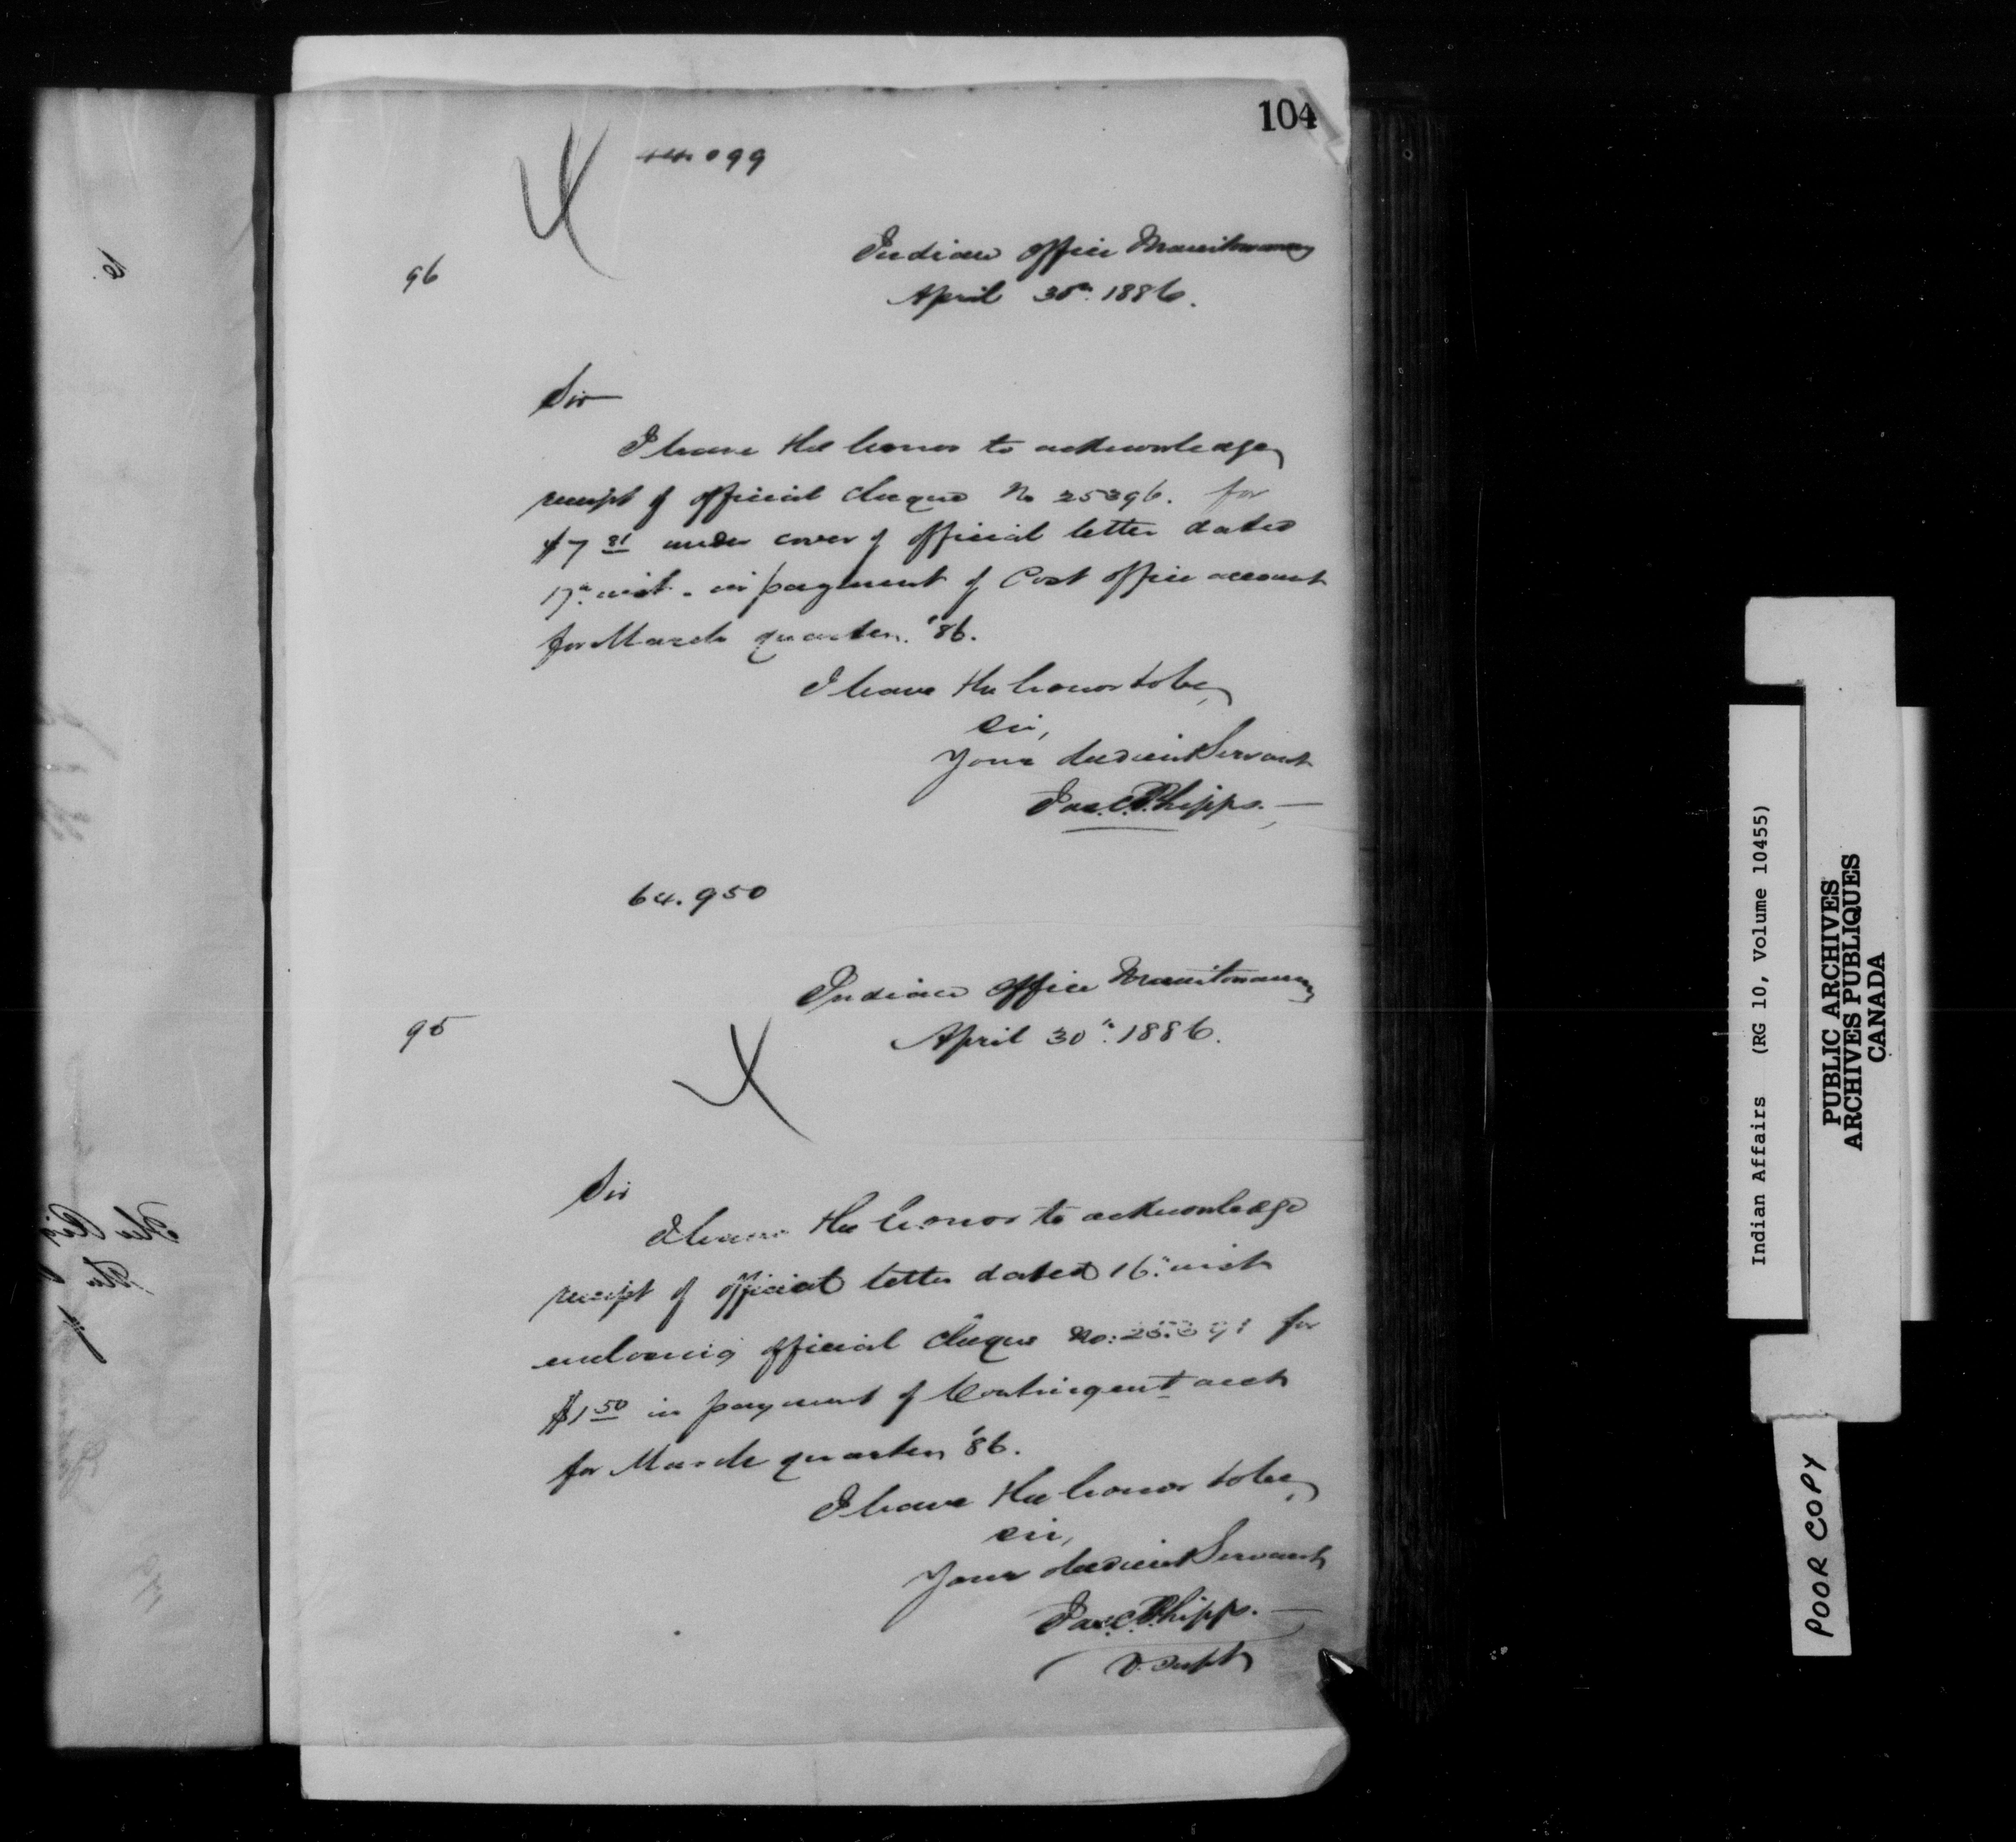 104
44.099
96
Indian Office Manitowaning
April 30th 1886.
Sir
I have the honor to acknowledge
receipt of official cheque No 25396. for
$7 81 under cover of official letter dated
17th inst. in payment of Post office account
for March quarter. '86.
I have the honor to be,
Sir,
Your obedient Servant
Jas. C. Phipps.
64.950
Indian Office Manitowaning
95
April 30th 1886.
Sir
I have the honor to acknowledge
receipt of official letter dated 16th inst
enclosing official cheque No: for
$1 50 in payment of Contingent acct
for March quarter '86.
I have the honor to be,
Sir,
Your obedient Servant
Jas. C. Phipps.
V. Supt
Indian Affairs (RG 10, Volume 10455)
PUBLIC ARCHIVES
ARCHIVES PUBLIQUES
CANADA
POOR COPY